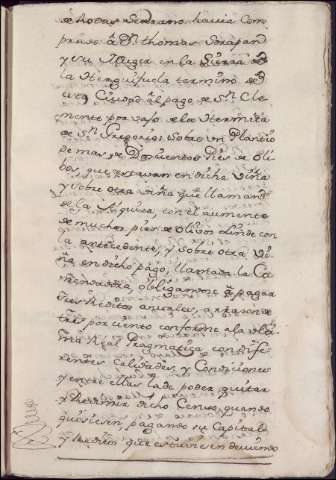 de hodas Serrano havia Com
prado á Dn. thomas
y su Muger en la Sierra de
la Yeruquihuela termino de
esta Ciudad al pago de Sn. Cle
mente por vajo de la Hermita
de Sn. Gregorio: Sobre un Plantio
de mas de Doscientos Pies de oli
bos, que estavan en dicha Viña
y sobre otra viña que llaman
de la Higuera, con el aumento
de muchos pies de olivos Linde con
la antecedente, y sobre otra Vi
ña, en dicho pago, llamada la Ca
obligandome á pagar
sus Reditos anuales, a razon de
tres por ciento conforme a la ulti
ma Real Pragmatica con dife
rentes calidades, y Condiciones
y entre ellas la de poder quitar
y Redimir dicho Censo, quando
quisiere, pagando su Capital
y Reditos que estuviesen deviendo